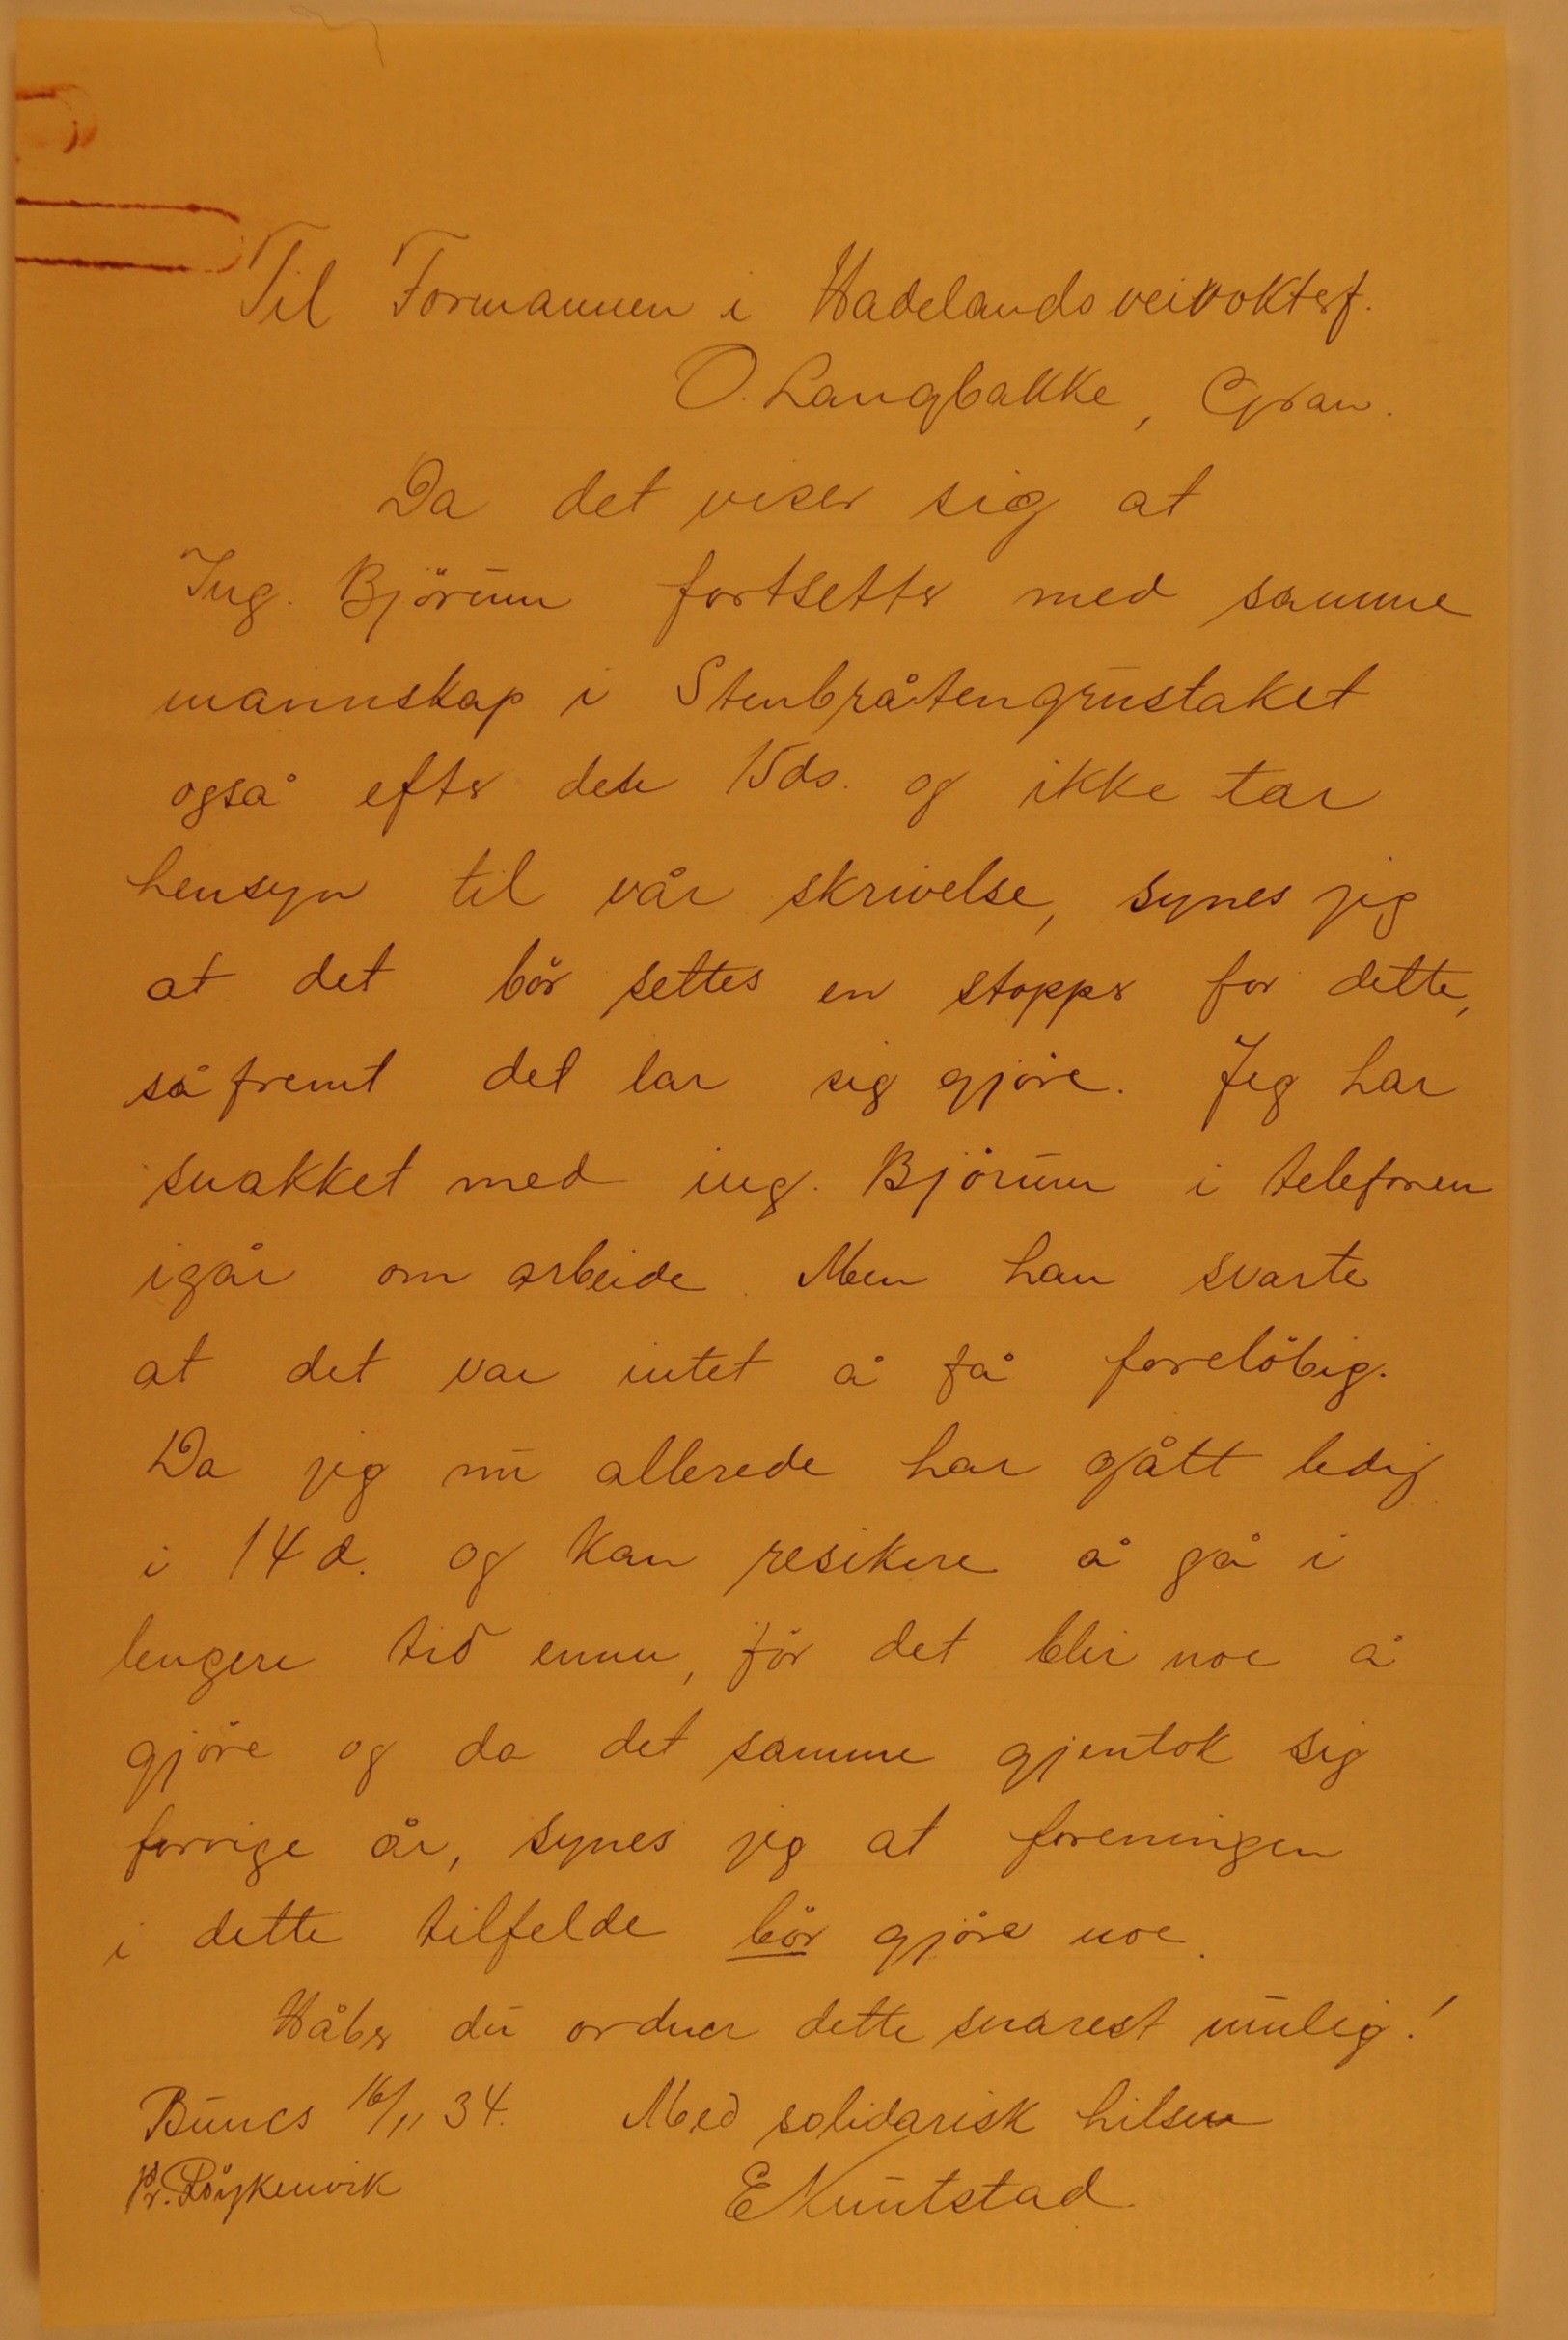 Til Formannen i Hadelands veivokterf.
O. Langbakke, Gran.
Da det viser sig at
Ing. Björum fortsetter med samme
mannskap i Stenbråtengrustaket
også efter den 15ds. og ikke tar
hensyn til vår skrivelse, synes jeg
at det bör settes en stopper for dette,
såfremt det lar sig gjöre. Jeg har
snakket med ing. Björum i telefonen
igår om arbeide. Men han svarte
at det var intet å få forelöbig.
Da jeg nu allerede har gått ledig
i 14 d. og kan resikere å gå i
lengere tid ennu, för det blir noe å
gjöre og da det samme gjentok sig
forrige år, synes jeg at foreningen
i dette tilfelde bör gjöre noe.
Håber du ordner dette snarest mulig!
Bunes 16/11 34. Med solidarisk hilsen
Pr. Röykenvik